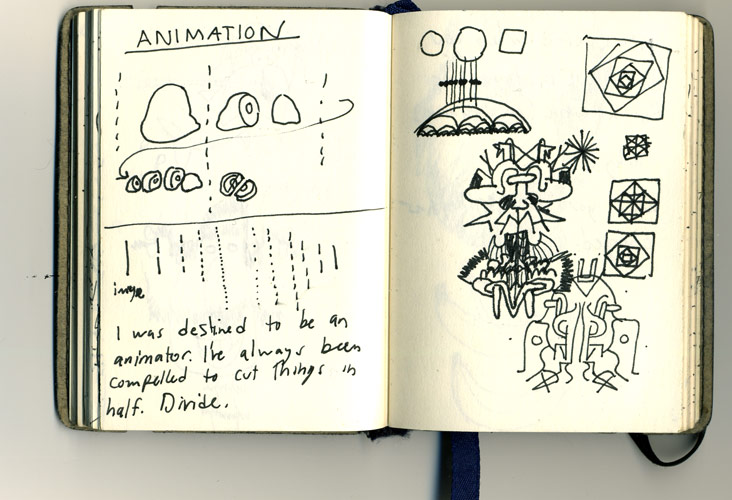 ANIMATION
I was destined to be an
animator. I've always been
compelled to cut Things in
half. Divide.